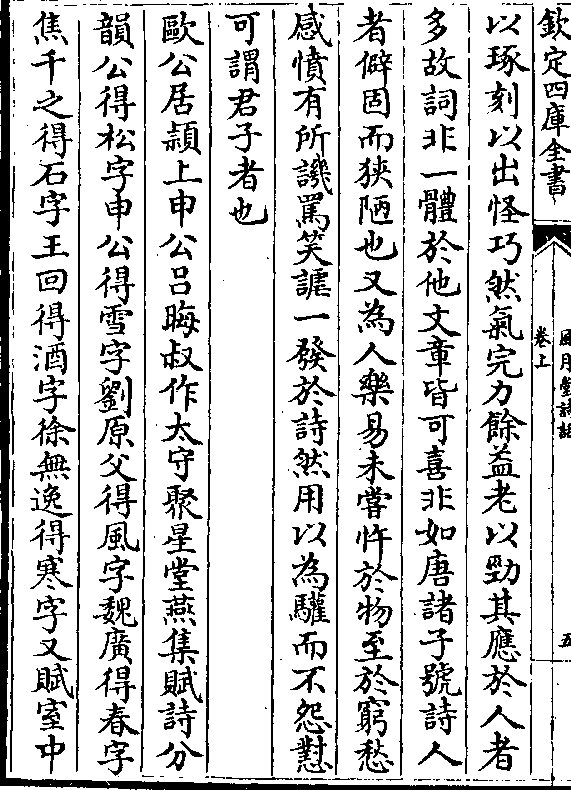 欽定四庫全書
風月堂詩話
卷上
五
以琢刻以出怪巧然氣完力餘益老以勁其應於人者
多故詞非一體於他文章皆可喜非如唐諸子號詩人
者僻固而狹陋也又為人樂易未嘗忤於物至於窮愁
感憤有所譏罵笑謔一發於詩然用以為驩而不怨懟
可謂君子者也
歐公居潁上申公呂晦叔作太守聚星堂燕集賦詩分
韻公得松字申公得雪字劉原父得風字魏廣得春字
焦千之得石字王回得酒字徐無逸得寒字又賦室中